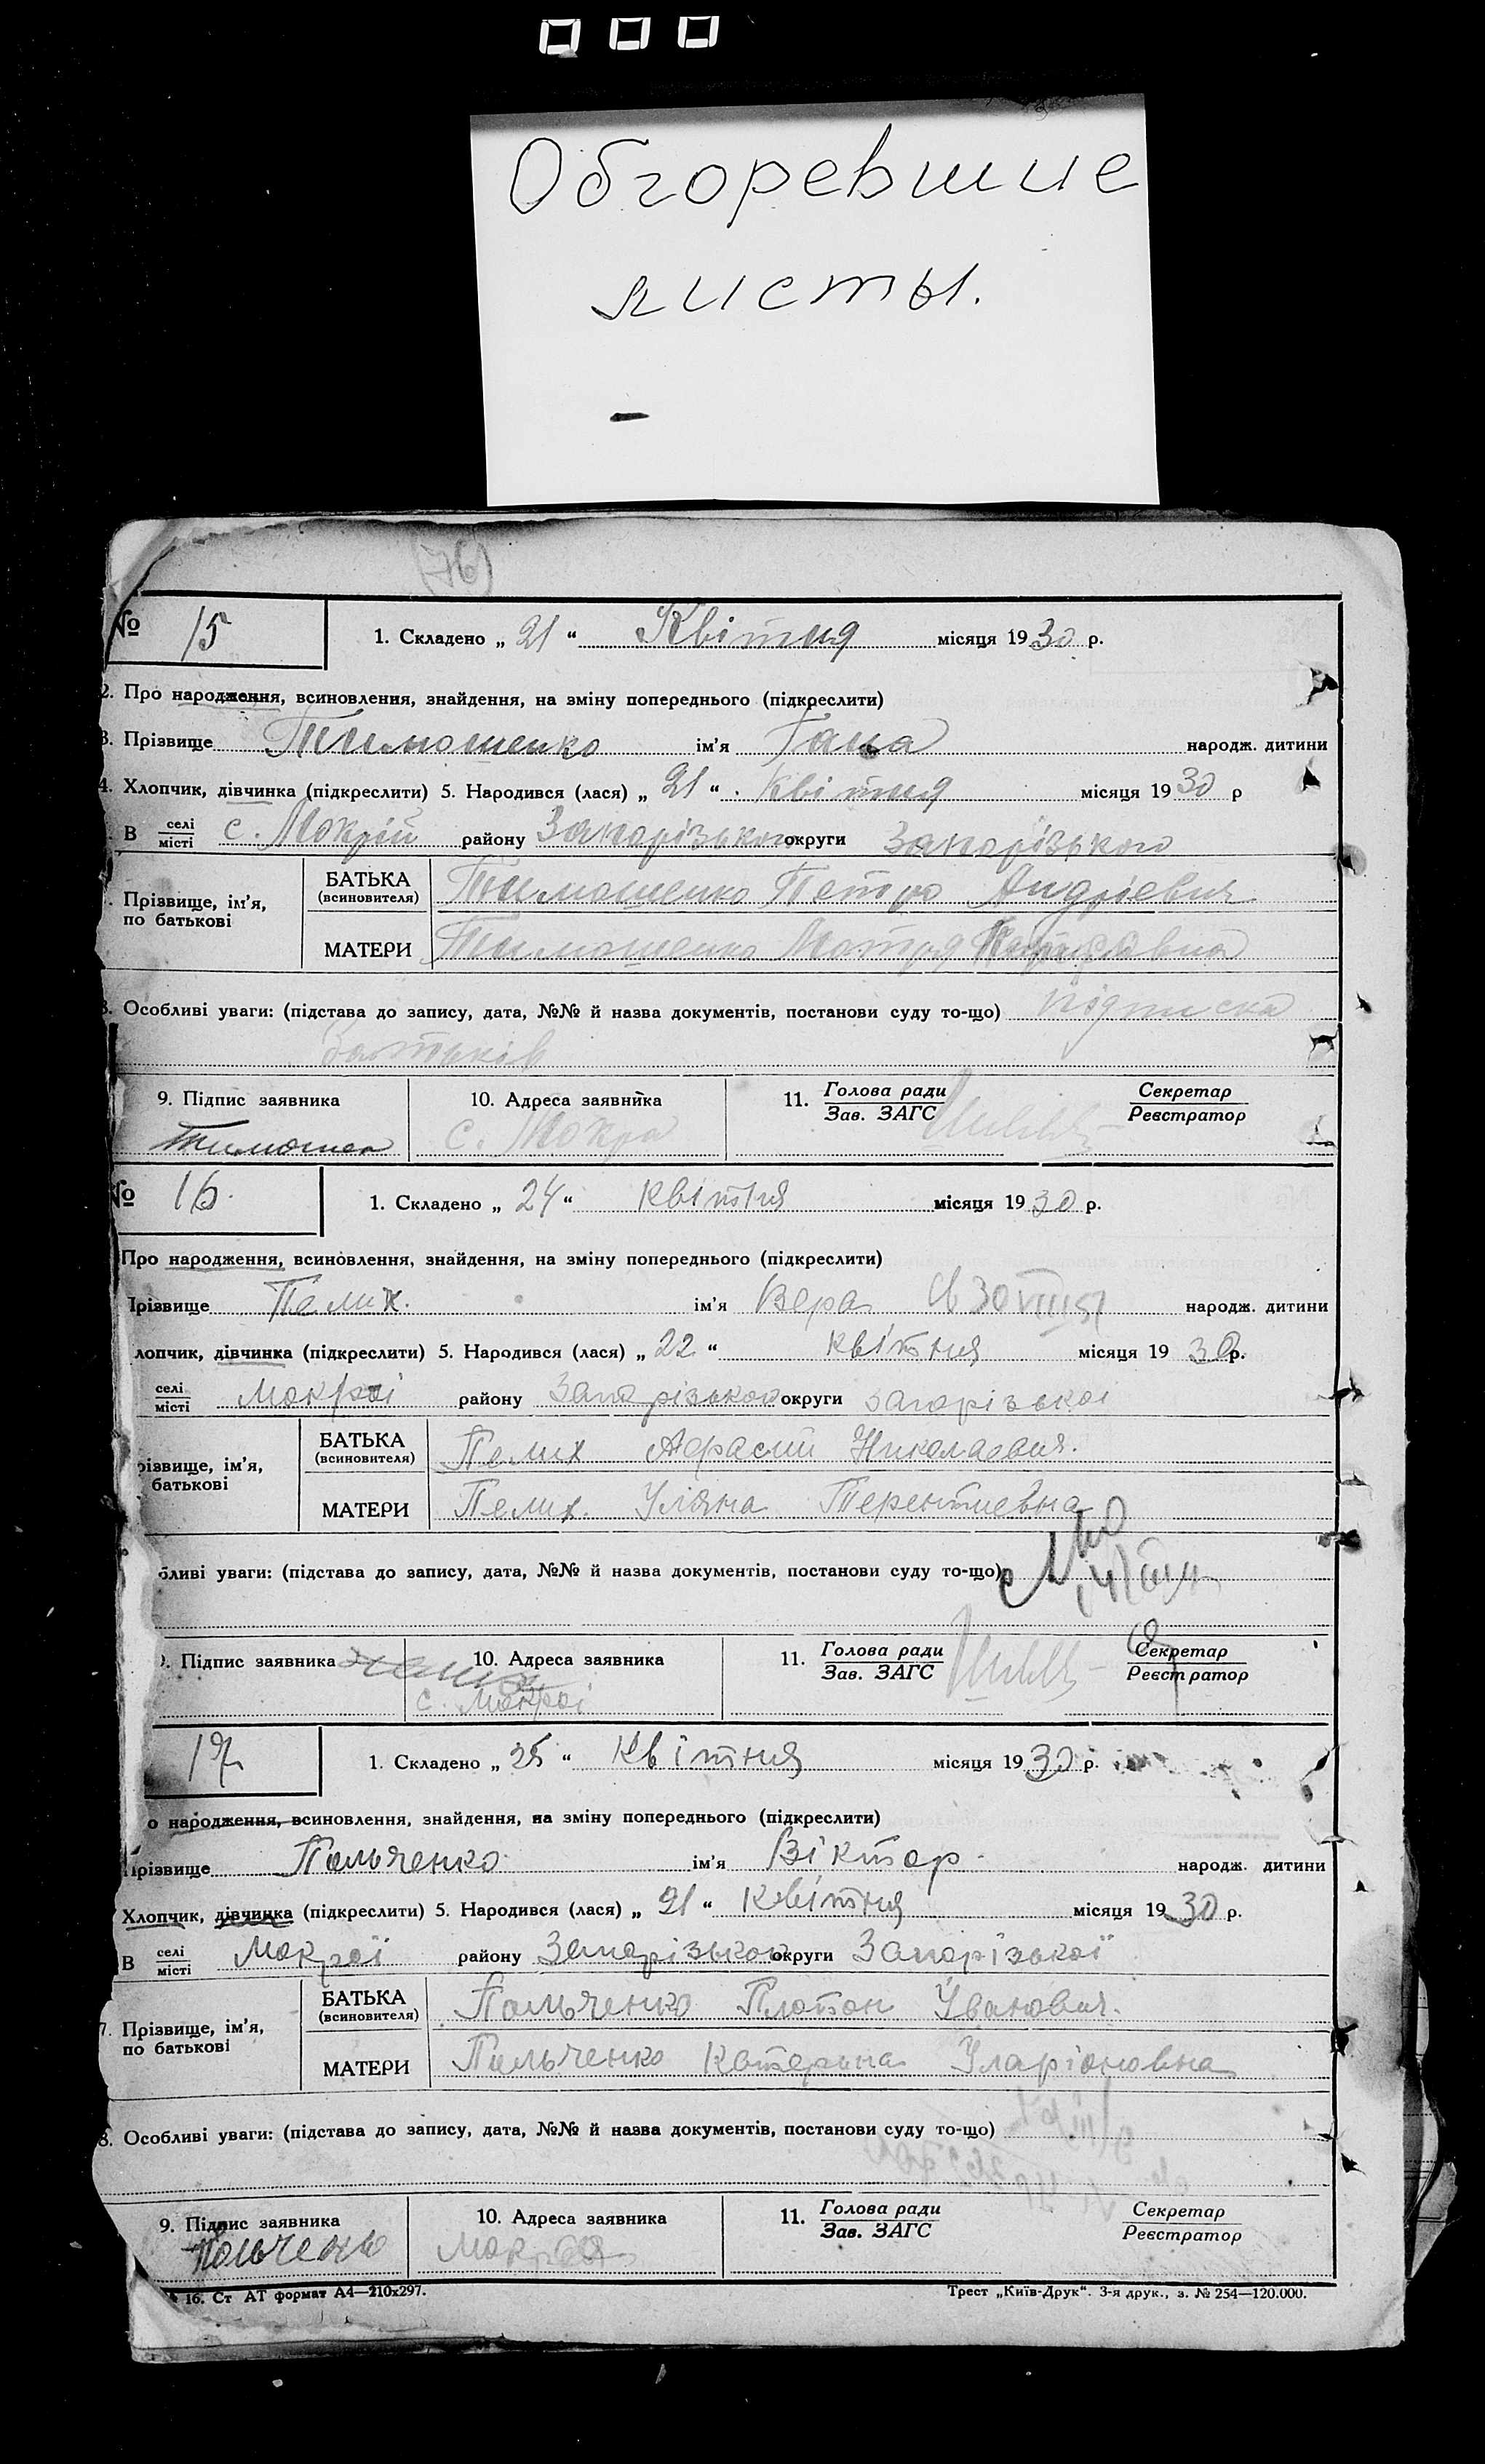 Обгоревшие
листы.
(76)
№ 15 1. Складено „ 21 “ Квітня місяця 1930 р.
2. Про народження, всиновлення, знайдення, на зміну попереднього (підкреслити)
3. Прізвище Тимошенко ім'я Гана народж. дитини
4. Хлопчик, дівчинка (підкреслити) 5. Народився (лася) „ 21 “ Квітня місяця 1930 р
В селі/місті с. Мокрій району Запорізького округи Запорізького
Прізвище, ім'я, по батькові БАТЬКА (всиновителя) Тимошенко Петро Андріевич
МАТЕРИ Тимошенко Мотря
8. Особливі уваги: (підстава до запису, дата, №№ й назва документів, постанови суду то-що) підписка
Батьків
9. Підпис заявника 10. Адреса заявника 11. Голова ради/Зав. ЗАГС Секретар/Реєстратор
Тимошен с. Мокра
№ 16. 1. Складено „ 24 “ Квітня місяця 1930 р.
Про народження, всиновлення, знайдення, на зміну попереднього (підкреслити)
Прізвище Пелих. ім'я Вера 30 VIII 51 народж. дитини
лопчик, дівчинка (підкреслити) 5. Народився (лася) „ 22 “ квітня місяця 1930р.
селі/місті Мокрої району Запорізького округи Запорізькоі
різвище, ім'я, батькові БАТЬКА (всиновителя) Пелих Афрасий Николаевич.
МАТЕРИ Пелих. Уляна Терентиевна
бливі уваги: (підстава до запису, дата, №№ й назва документів, постанови суду то-що)
9. Підпис заявника Пелих 10. Адреса заявника 11. Голова ради/Зав. ЗАГС Секретар/Реєстратор
с. Мокроі
17 1. Складено „ 25 “ Квітня місяця 1930 р.
о народження, всиновлення, знайдення, на зміну попереднього (підкреслити)
Прізвище Пальченко ім'я Віктор. народж. дитини
Хлопчик, дівчинка (підкреслити) 5. Народився (лася) „ 21 “ Квітня місяця 1930 р.
В селі/місті Мокрої району Запорізького округи Запорізької
7. Прізвище, ім'я, по батькові БАТЬКА (всиновителя) Пальченко Платон Уванович.
МАТЕРИ Пальченко Катерина Уларіоновна
8. Особливі уваги: (підстава до запису, дата, №№ й назва документів, постанови суду то-що)
9. Підпис заявника 10. Адреса заявника 11. Голова ради/Зав. ЗАГС Секретар/Реєстратор
Пальченко Мокрая
16. Ст АТ формат А4—210х297. Трест „Київ-Друк“. 3-я друк., з. № 254—120.000.